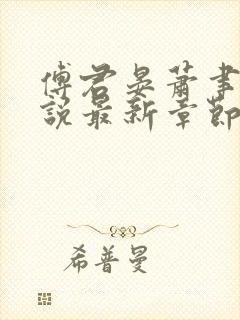 傅君晏萧事
说最新章节
希普曼